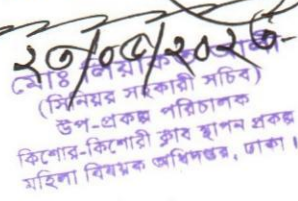 মোঃ
(সিনিয়র সহকারী সচিব)
উপ-প্রকল্প পরিচালক
কিশোর-কিশোরী ক্লাব স্থাপন প্রকল্প
মহিলা বিষয়ক অধিদপ্তর, ঢাকা।